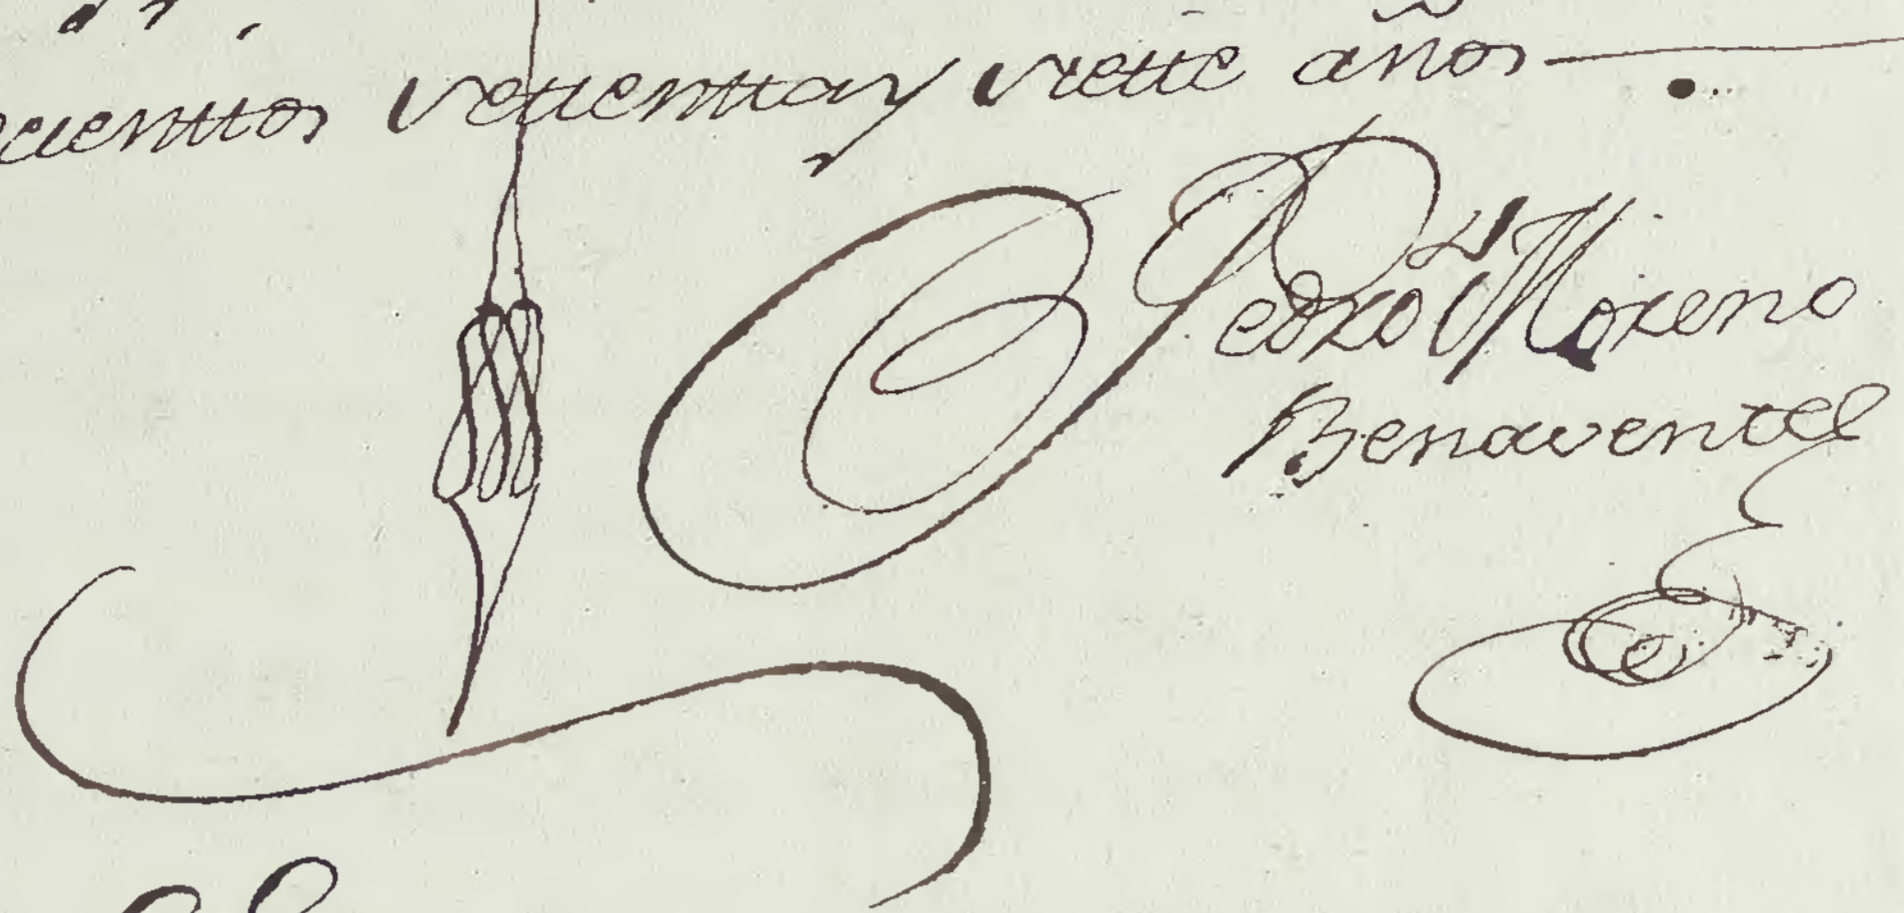 cuenttos settentta y siette años
Pedro Moreno
Benavente